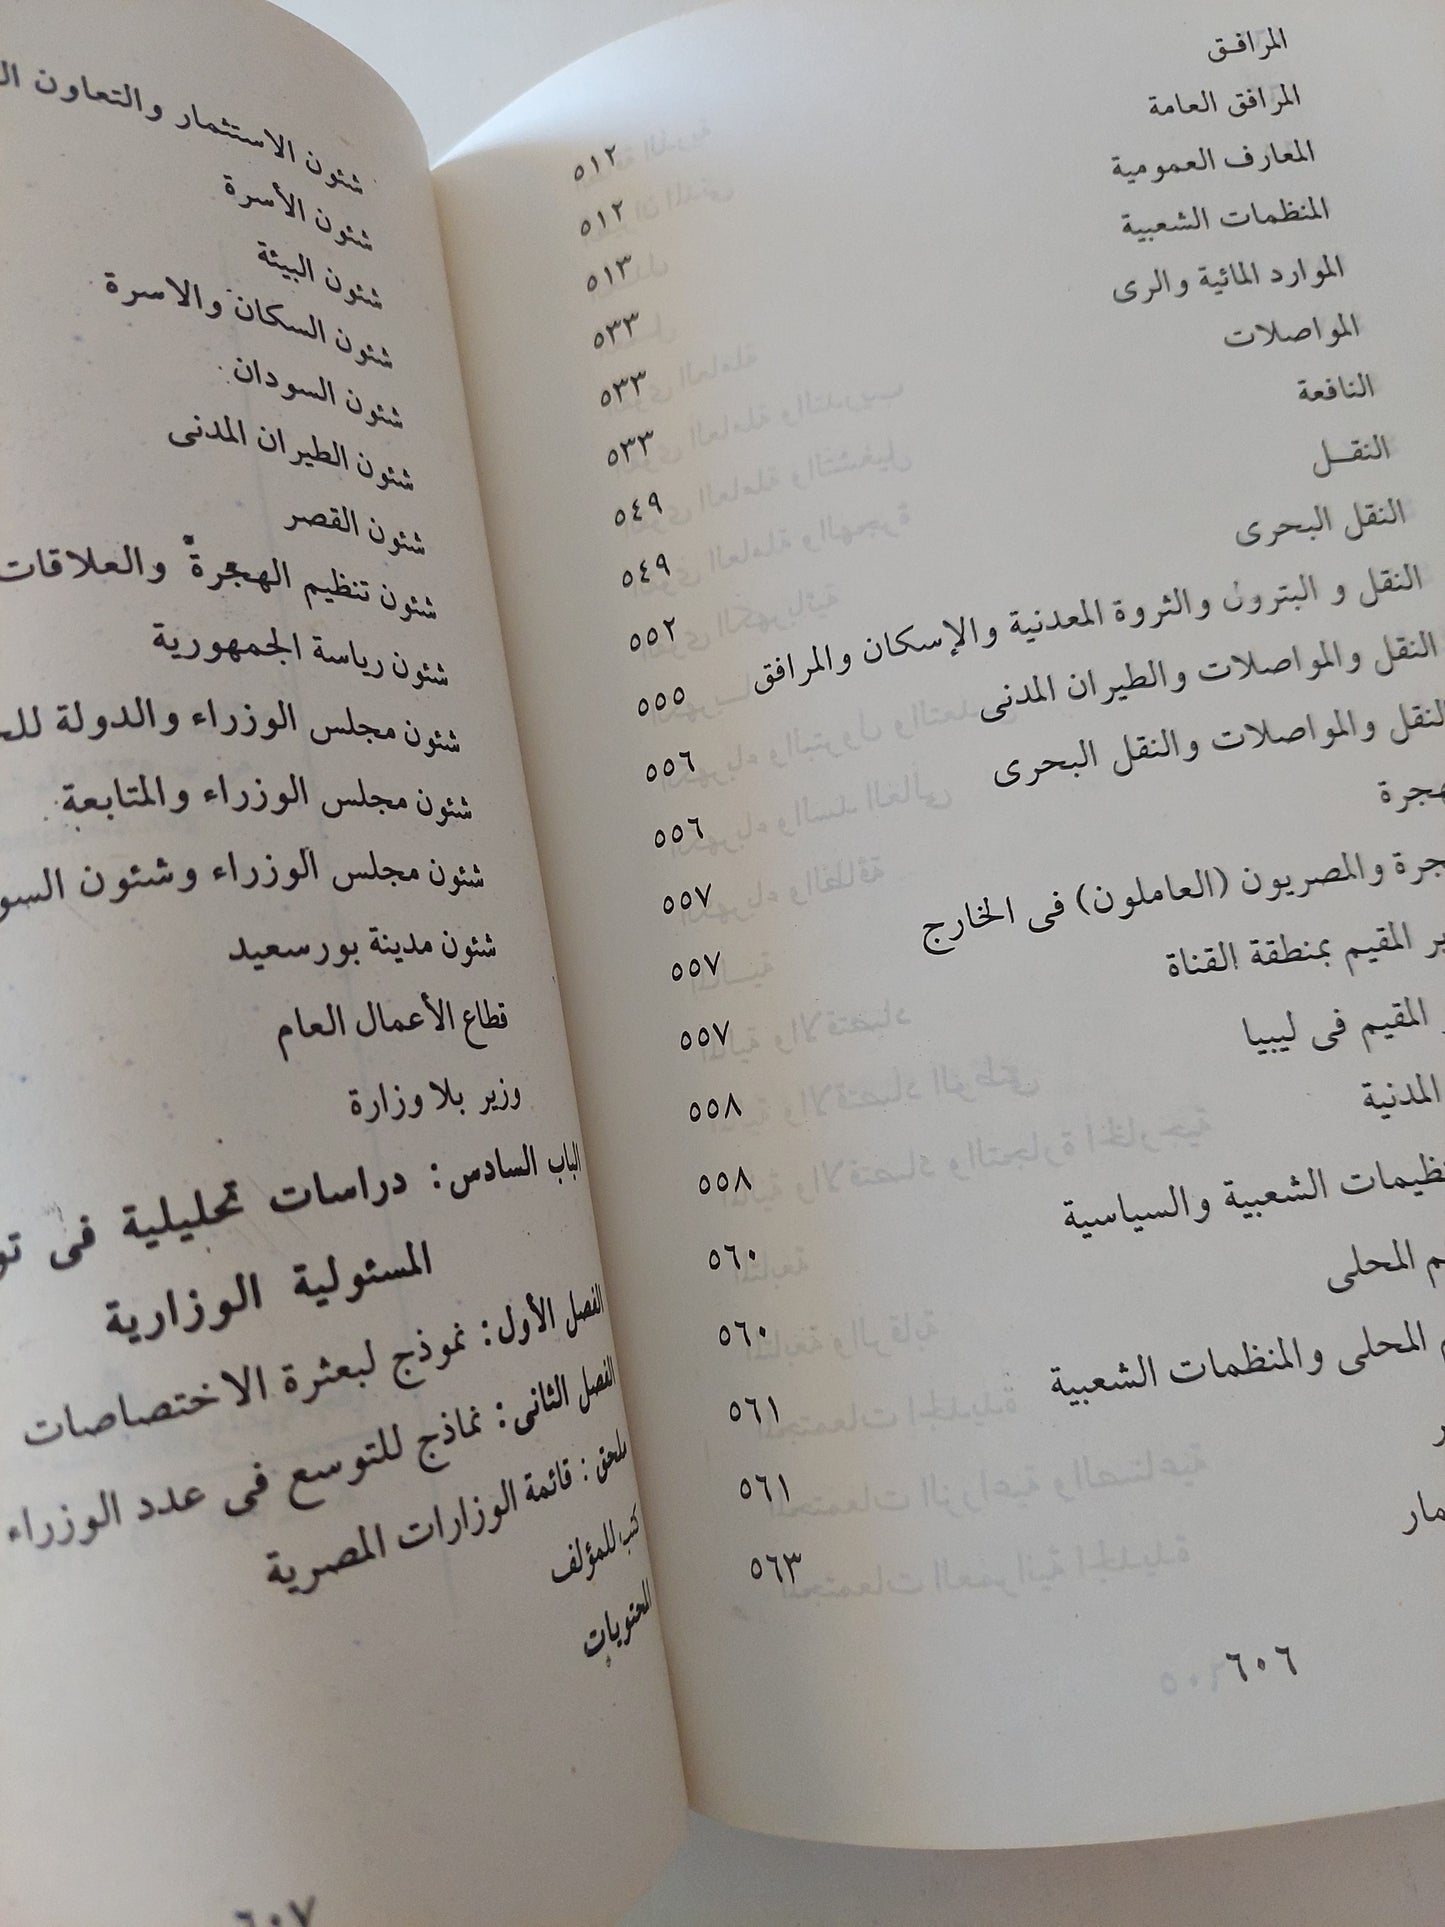 المرافق ٥١٢
المرافق العامة ٥١٢
المعارف العمومية ٥١٣
المنظمات الشعبية ٥٣٣
الموارد المائية والرى ٥٣٣
المواصلات ٥٣٣
النافعة ٥٤٩
النقل ٥٤٩
النقل البحرى ٥٥٢
النقل و البترول والثروة المعدنية والإسكان والمرافق ٥٥٥
النقل والمواصلات والطيران المدنى ٥٥٦
النقل والمواصلات والنقل البحرى ٥٥٦
٥٥٧
والمصريون (العاملون) فى الخارج ٥٥٧
المقيم بمنطقة القناة ٥٥٧
المقيم فى ليبيا ٥٥٨
المدنية ٥٥٨
الشعبية والسياسية ٥٦٠
المحلى ٥٦٠
المحلى والمنظمات الشعبية ٥٦١
٥٦١
٥٦٣
٦٠٦
شئون الاستثمار والتعاون
شئون الأسرة
شئون البيئة
شئون السكان والاسرة
شئون السودان
شئون الطيران المدنى
شئون القصر
شئون تنظيم الهجرة والعلاقات
شئون رياسة الجمهورية
شئون مجلس الوزراء والدولة
شئون مجلس الوزراء والمتابعة
شئون مجلس الوزراء وشئون
شئون مدينة بورسعيد
قطاع الأعمال العام
وزير بلا وزارة
الباب السادس: دراسات تحليلية فى
المسئولية الوزارية
الفصل الأول: نموذج لبعثرة الاختصاصات
الفصل الثانى: نماذج للتوسع فى عدد الوزراء
ملحق: قائمة الوزارات المصرية
كتب للمؤلف
المحتويات
٦٠٧